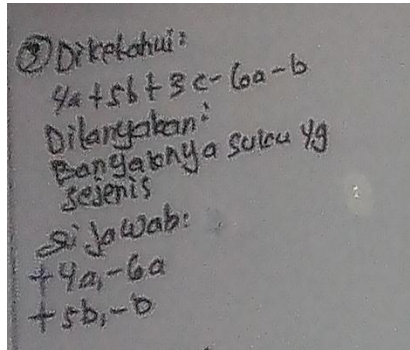 ② Diketahui:
4a + 5b + 3c - 6a - b
Ditanyakan:
Banyaknya suku yg
sejenis
Di jawab:
+ 4a, - 6a
+ 5b, - b